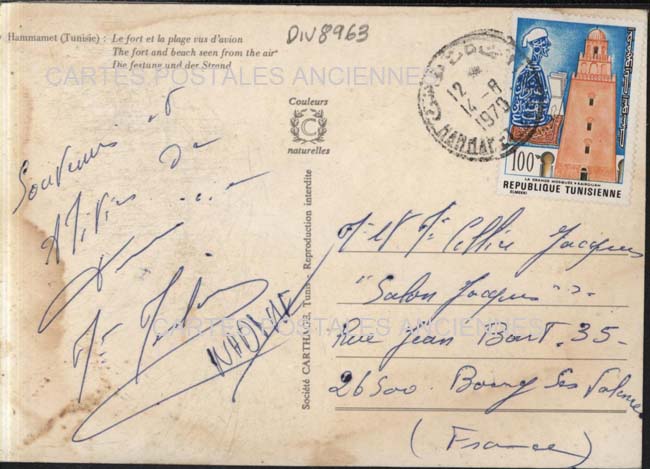 DIV8963
Hammamet (Tunisie) : Le fort et la plage vus d'avion
The fort and beach seen from the air
Die festung und der Strand
CARTES POSTALES ANCIENNES
Couleurs
C
naturelles
Souvenirs et
de
NADINE
Société CARTHAGE, Tunis - Reproduction interdite
12
14 -8
1979
HAMMAMET
100
LA GRANDE MOSQUEE KAIROUAN
REPUBLIQUE TUNISIENNE
ELMEKKI
Jacques
"Salon Jacques"
CARTES POSTALES ANCIENNES
Rue Jean Bart. 35-
26500. Bourg les Valence
(France)